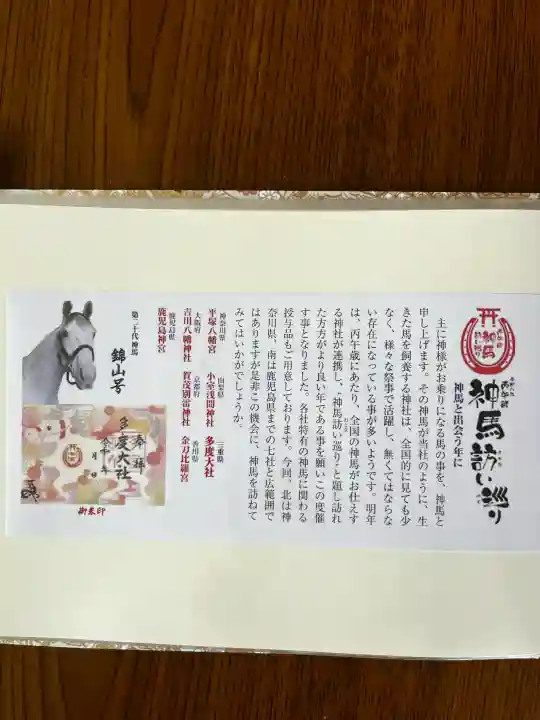 神馬訪い巡り
神馬と出会う年に
主に神様がお乗りになる馬の事を、神馬と
申し上げます。その神馬が当社のように、生
きた馬を飼養する神社は、全国的に見ても少
なく、様々な祭事で活躍し、無くてはならな
い存在になっている事が多いようです。明年
は、丙午歳にあたり、全国の神馬がお仕えす
る神社が連携し、『神馬訪い巡り』と題し訪れ
た方方がより良い年である事を願いこの度催
す事となりました。各社特有の神馬に関わる
授与品もご用意しております。今回、北は神
奈川県、南は鹿児島県までの七社と広範囲で
はありますが是非この機会に、神馬を訪ねて
みてはいかがでしょうか。
神奈川県
平塚八幡宮
山梨県
小室浅間神社
三重県
多度大社
大阪府
吉川八幡神社
京都府
賀茂別雷神社
香川県
金刀比羅宮
鹿児島県
鹿児島神宮
第二十代神馬
錦山号
奉拝
多度大社
令和 年
月 日
御朱印